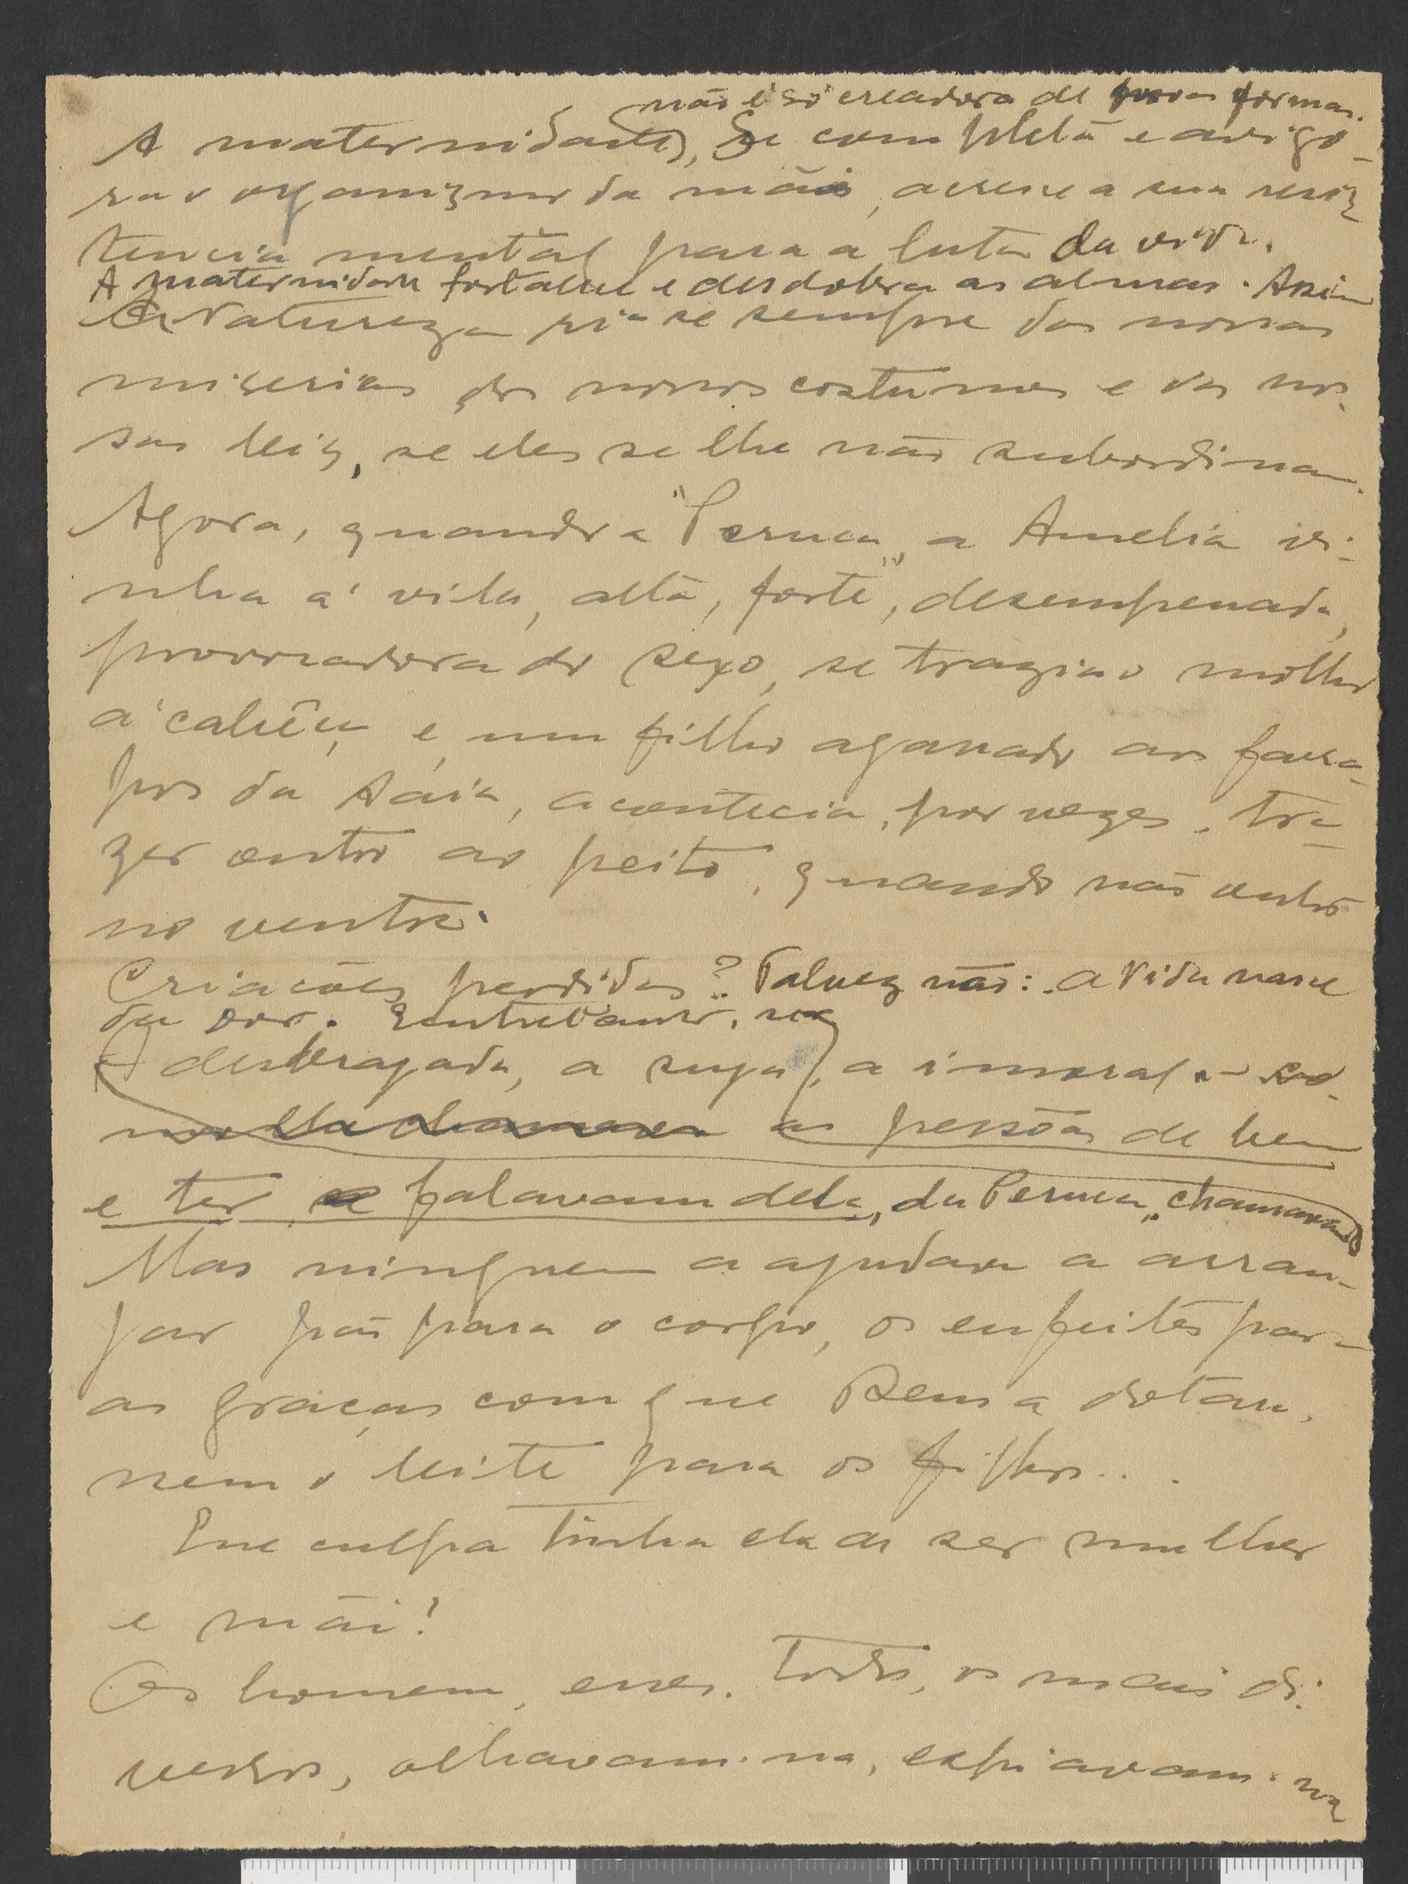 não é só creadora de novas formas.
A maternidade, Se completa e avigo-
ra o organizmo da mãi, acresce a sua resiz
tencia mental para a luta da vida.
A maternidade fortalece e desdobra as almas. Asim
A Natureza ri-se sempre das nossas
miserias dos nossos costumes e das nos-
sas leis, se eles se lhe não subordinam.
Agora, quando a "Peruca" a Amelia vi-
nha á vila, alta, forte, desempenada,
provocadora do sexo, se trazia o molho
á cabêça, e um filho agarrado aos farra-
pos da sáia, acontecia, por vezes, tra-
zer outro ao peito, quando não outro
no ventre.
Criacões perdidas? Talvez não: a Vida nasce
da dor. Entretanto,
A desbragada, a suja, a imoral
as pessôas de bem
e ter falavam dela, da Peruca, chamavam
Mas ninguem a ajudava a arran-
jar pão para o corpo, os enfeites para
as graças com que Deus a dotara,
nem o leite para os filhos...
Que culpa tinha ela de ser mulher
e mãi?
Os homem, esses. Todos, os mais di-
versos, olhavam-na, espiavam-na